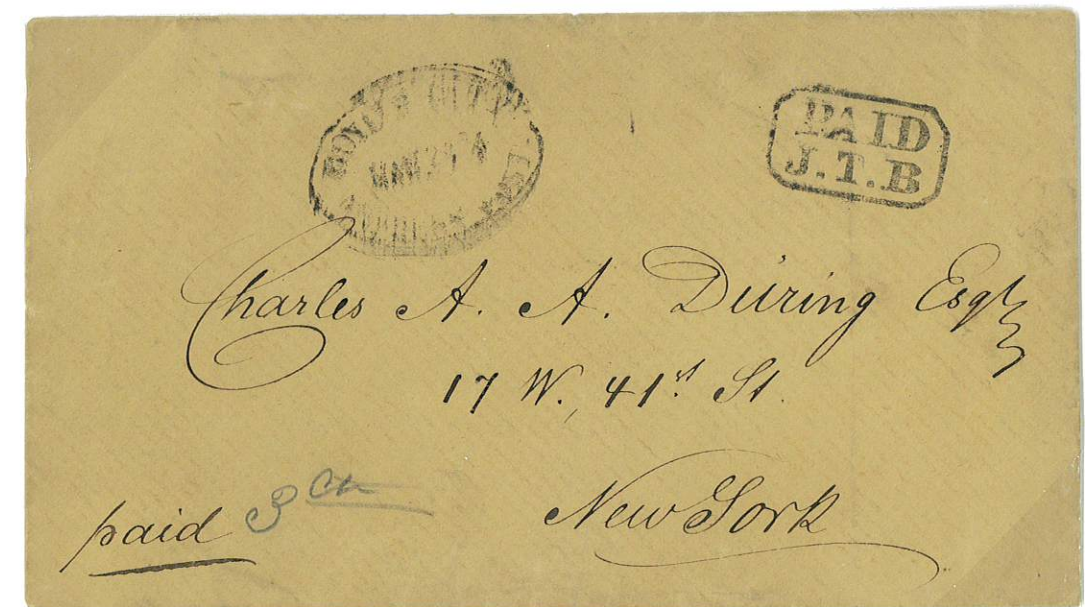 BOYD'S CITY
PAID
J.T.B
Charles A. A. Düring Esqr
17 W. 41st St.
New York
paid 3 cts